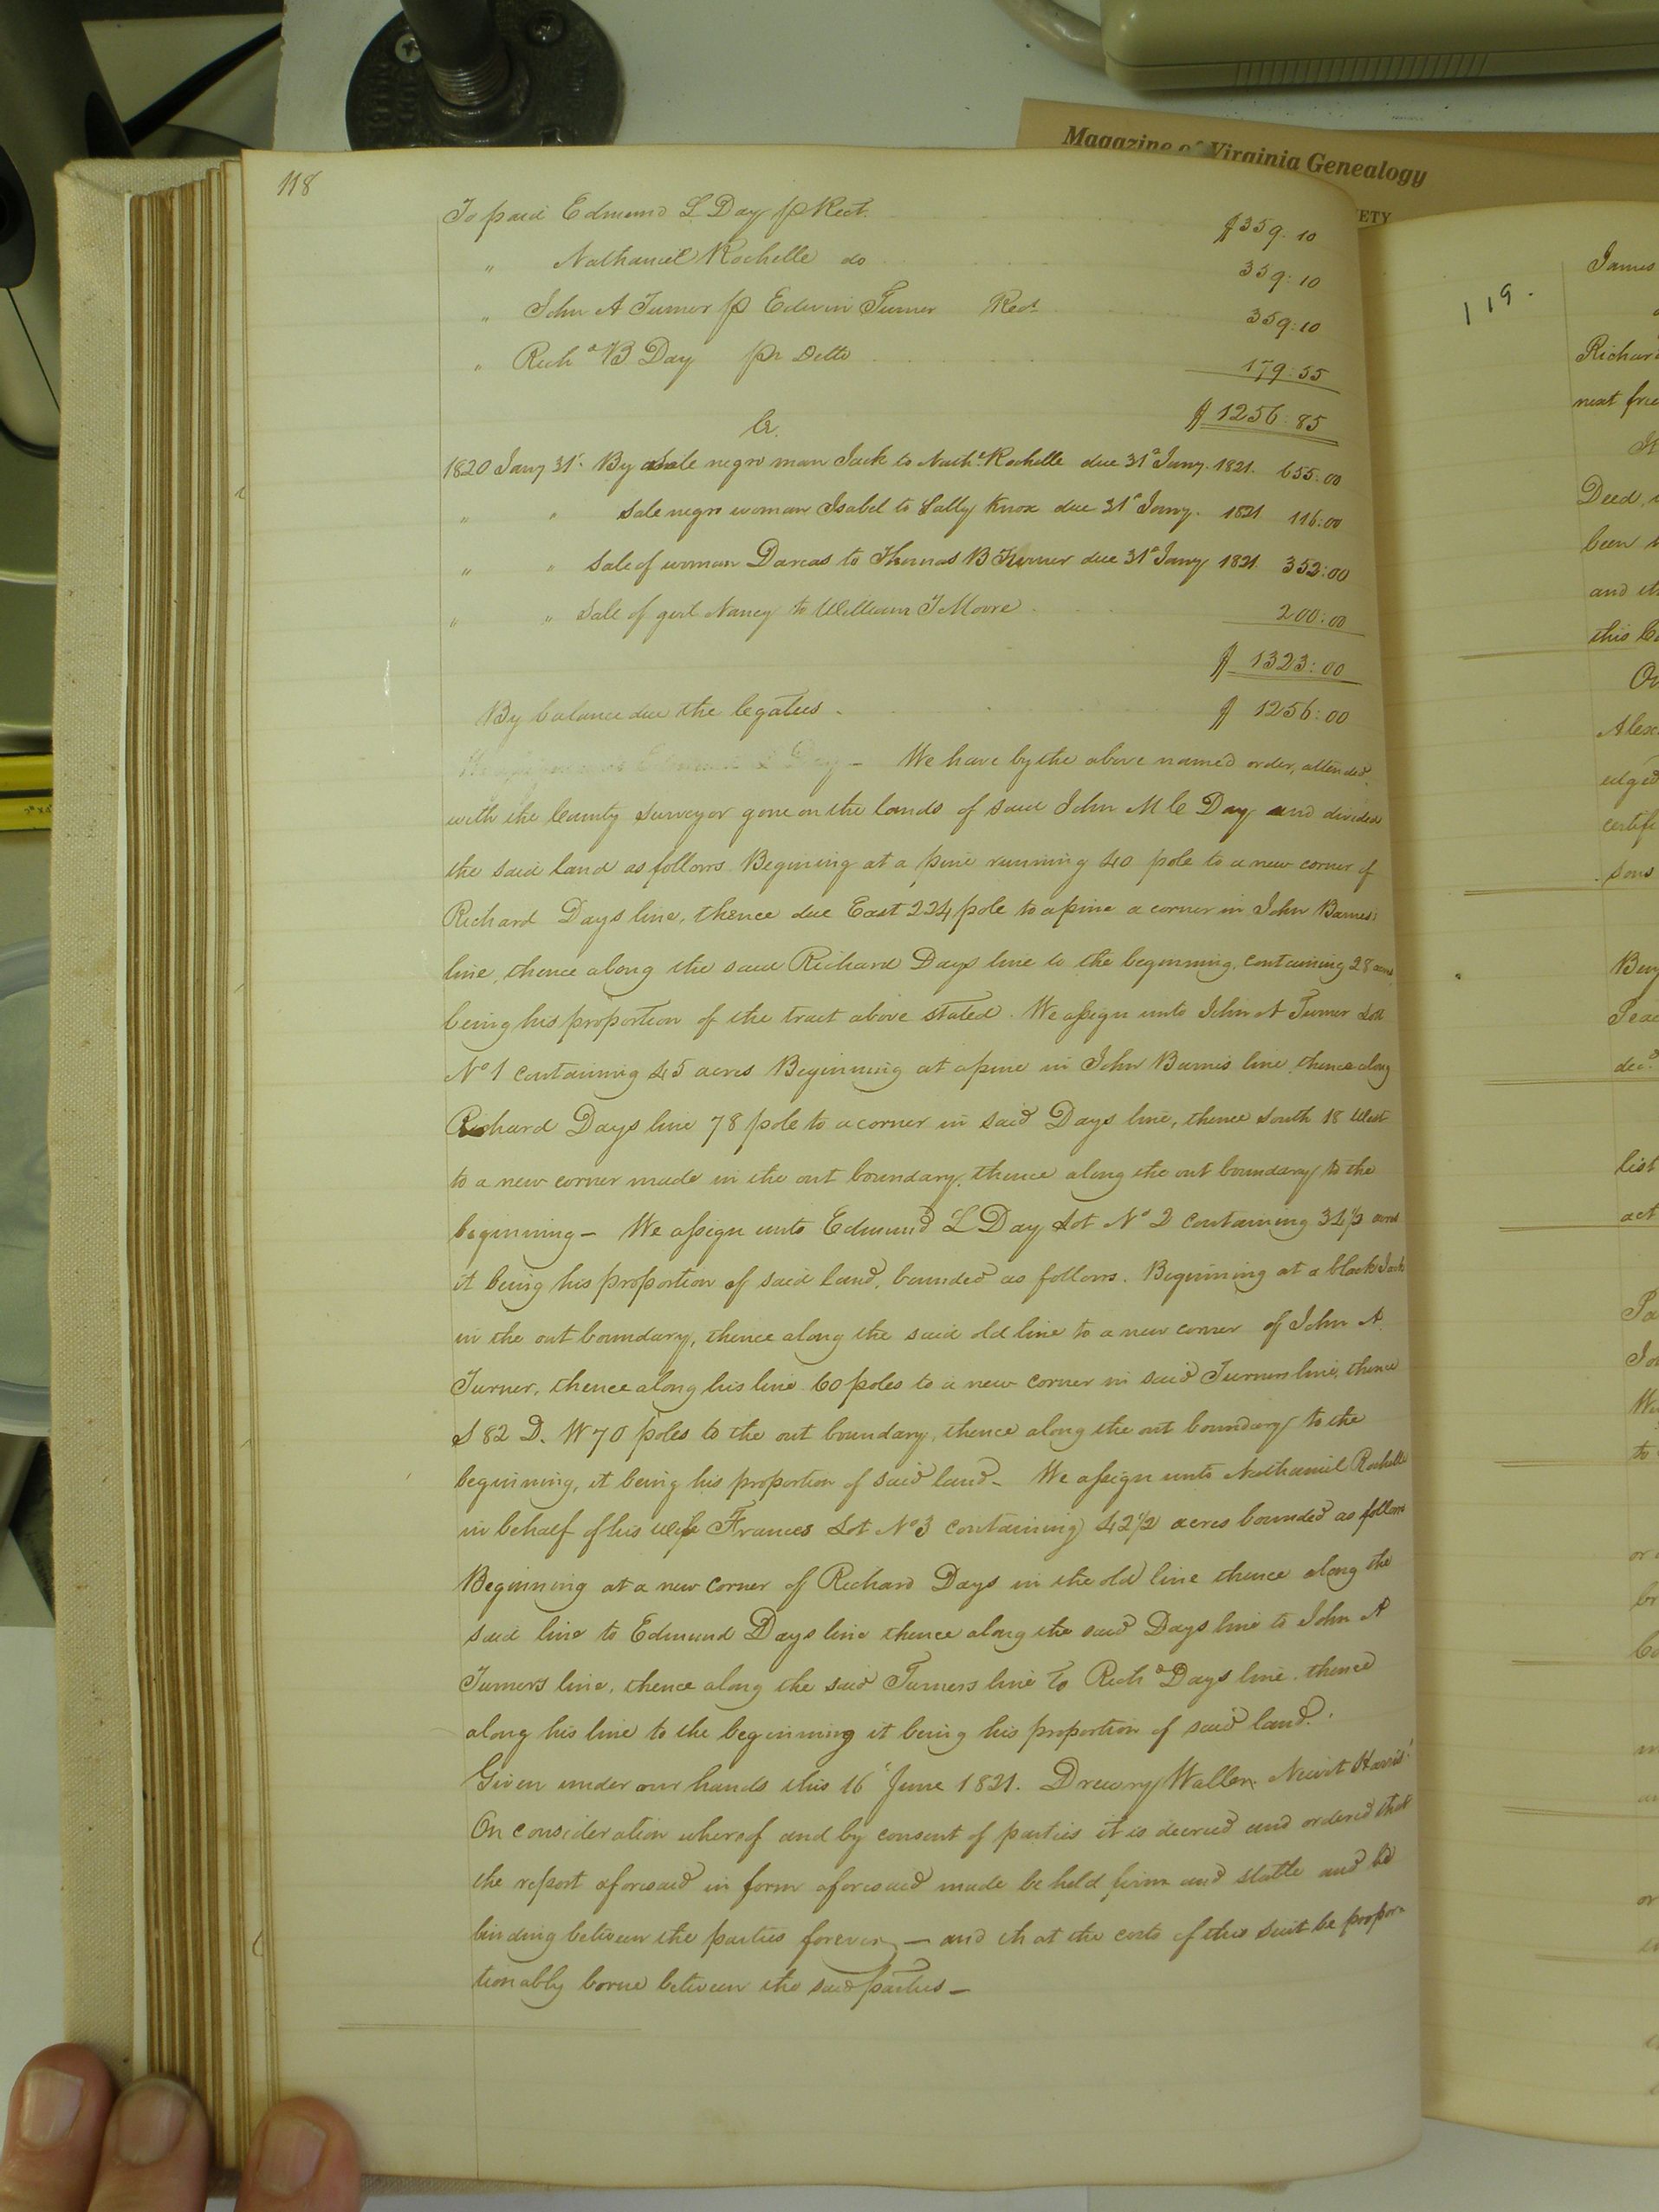 Magazine of Virginia Genealogy
ETY
118
To paid Edmund L Day p Rect. $359.10
" Nathaniel Rochelle do 359:10
" John A Turner p Edwin Turner Rect. 359:10
" Richd B Day pr Ditto 179:55
$1256:85
Cr.
1820 Jany 31st By sale negro man Jack to Nathl Rochelle due 31st Jany. 1821. 655:00
" " Sale negro woman Isabel to Sally Knox due 31st Jany. 1821 116:00
" " Sale of woman Darcas to Thomas B Turner due 31st Jany 1821. 352:00
" " Sale of girl Nancy to William T Moore 200:00
$1323:00
By balance due the legatees - $1256:00
Edmund L Day - We have by the above named order, attended
with the County Surveyor gone on the lands of said John M C Day and divided
the said land as follows Begining at a pine running 40 pole to a new corner of
Richard Days line, thence due East 224 pole to a pine a corner in John Barnes's
line, thence along the said Richard Days line to the beginning, containing 28 acres
being his proportion of the tract above stated. We assign unto John A Turner Lott
No 1 containing 45 acres Beginning at a pine in John Barnes line, thence along
Richard Days line 78 pole to a corner in said Days line, thence South 18 West
to a new corner made in the out boundary, thence along the out boundary to the
beginning - We assign unto Edmund L Day Lot No 2 containing 34½ acres
it being his proportion of said land, bounded as follows. Beginning at a black Jack
in the out boundary, thence along the said old line to a new corner of John A
Turner, thence along his line 60 poles to a new corner in said Turners line, thence
S 82 D. W 70 poles to the out boundary, thence along the out boundary to the
beginning, it being his proportion of said land - We assign unto Nathaniel Rochelle
in behalf of his wife Frances Lot No 3 containing 42½ acres bounded as follows
Beginning at a new corner of Richard Days in the old line thence along the
said line to Edmund Days line thence along the said Days line to John A
Turners line, thence along the said Turners line to Richd Days line. thence
along his line to the beginning it being his proportion of said land.
Given under our hands this 16th June 1821. Drewry Waller. Newit Harris
On consideration whereof and by consent of parties it is decreed and ordered that
the report aforesaid in form aforesaid made be held firm and stable and be
binding between the parties forever - and that the costs of this suit be propor-
tionably borne between the said parties -
119.
James
Richard
next frie
Deed,
been
and it
this Co
Alex
edged
certifi
sons
Benj
decd
list
act
to
or